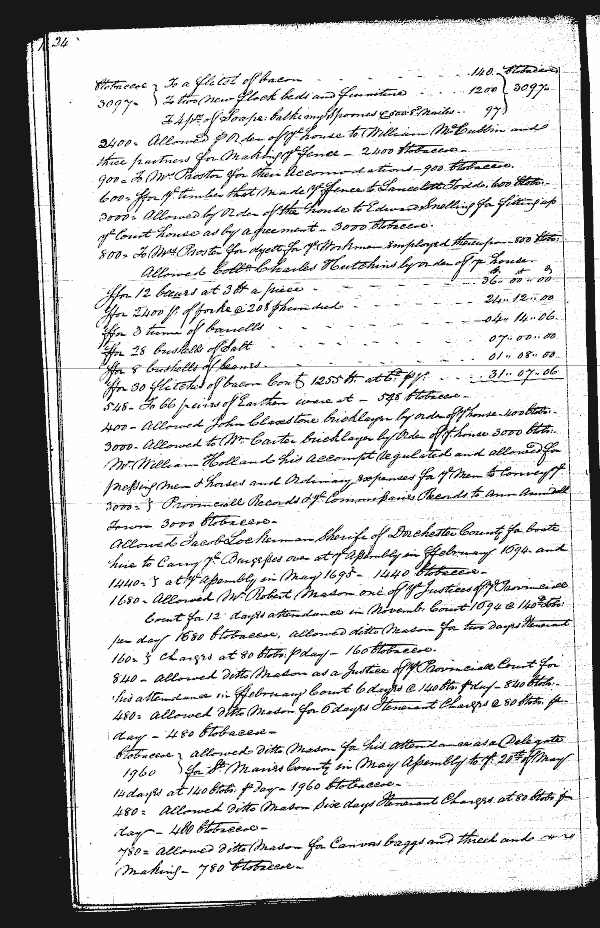 24
lbtobaccoe } To a flitch of bacon 140 lbtobaccoe
3097 = } To two new flock beds and furniture 1200 } 3097 =
To 4 pr. of Soape bathemy spoones & 500 Nailes 97
2400 = Allowed p Order of ye house to William McCubbin and
three partners for Making ye fence - 2400 lbtobaccoe -
900 = To Mr. Proctor for their Accommodations - 900 tobaccoe.
600 = ffor ye timber that Made ye ffence to Lancelott Todd - 600 lbtob -
3000 = Allowed by Order of the house to Edward Snelling for fitting up
ye Court house as by agreement - 3000 tobaccoe.
800 = To Mrs. Proctor for dyett for ye Workmen employed thereupon - 800 lbtob -
Allowed Collo. Charles Hutchins by order of ye house.
ffor 12 bears at 3 lb a piece 36 " 00 " 00
ffor 2400 p. of porke @ 20s p hundred 24 " 12 " 00
ffor 3 tunn of barrells 04 " 14 " 06
ffor 28 bushells of Salt 07 " 00 " 00
ffor 8 bushells of beans 01 " 08 " 00
ffor 30 flitches of bacon Cont. 1255 lb. at 6d. p. 31 " 07 " 06
548 - To 66 paires of Earthen ware at - 548 lbtobaccoe -
400 - Allowed John Clavestone bricklayer by order of ye house - 400 lbtob -
3000 - Allowed to Wm. Carter bricklayer by Order of ye house 3000 lbtob -
Mr. William Holland his Accompt Regulated and allowed for
Pressing Men & horses and Ordinary Expenses for ye Men to Convey ye
3000 = } Provinciall Records & ye Commissaries Records to Ann Arundell
Towne 3000 lbtobaccoe -
Allowed Jacob Lockerman Sheriffe of Dorchester County for boate
hire to Carry ye Burgesses over at ye Assembly in ffebruary 1694 and
1440 = } at ye Assembly in May 1695 - 1440 lbtobaccoe -
1680 - Allowed Mr. Robert Mason one of ye Justices of ye Provinciall
Court for 12 days attendance in Novembr Court 1694 @ 140 lbtob
per day 1680 lbtobaccoe, allowed ditto Mason for two days Itenerant
160 = } Charges at 80 lbtob p day - 160 lbtobaccoe.
840 - Allowed ditto Mason as a Justice of ye Provinciall Court for
his attendance in ffebruary Court 6 days @ 140 lbto. p day - 840 lbtob -
480 = Allowed ditto Mason for 6 days Itenerant Charges @ 80 lbtob. p
day - 480 lbtobaccoe -
lbtobaccoe } allowed ditto Mason for his attendance as a Delegate
1960 } for St. Maries County in May Assembly to ye 20th of May
14 days at 140 lbtob p day - 1960 lbtobaccoe -
480 = Allowed ditto Mason Six days Itenerant Charges at 80 lbtob p
day - 480 lbtobaccoe -
780 = Allowed ditto Mason for Canvas baggs and thread and
Making - 780 lbtobaccoe -